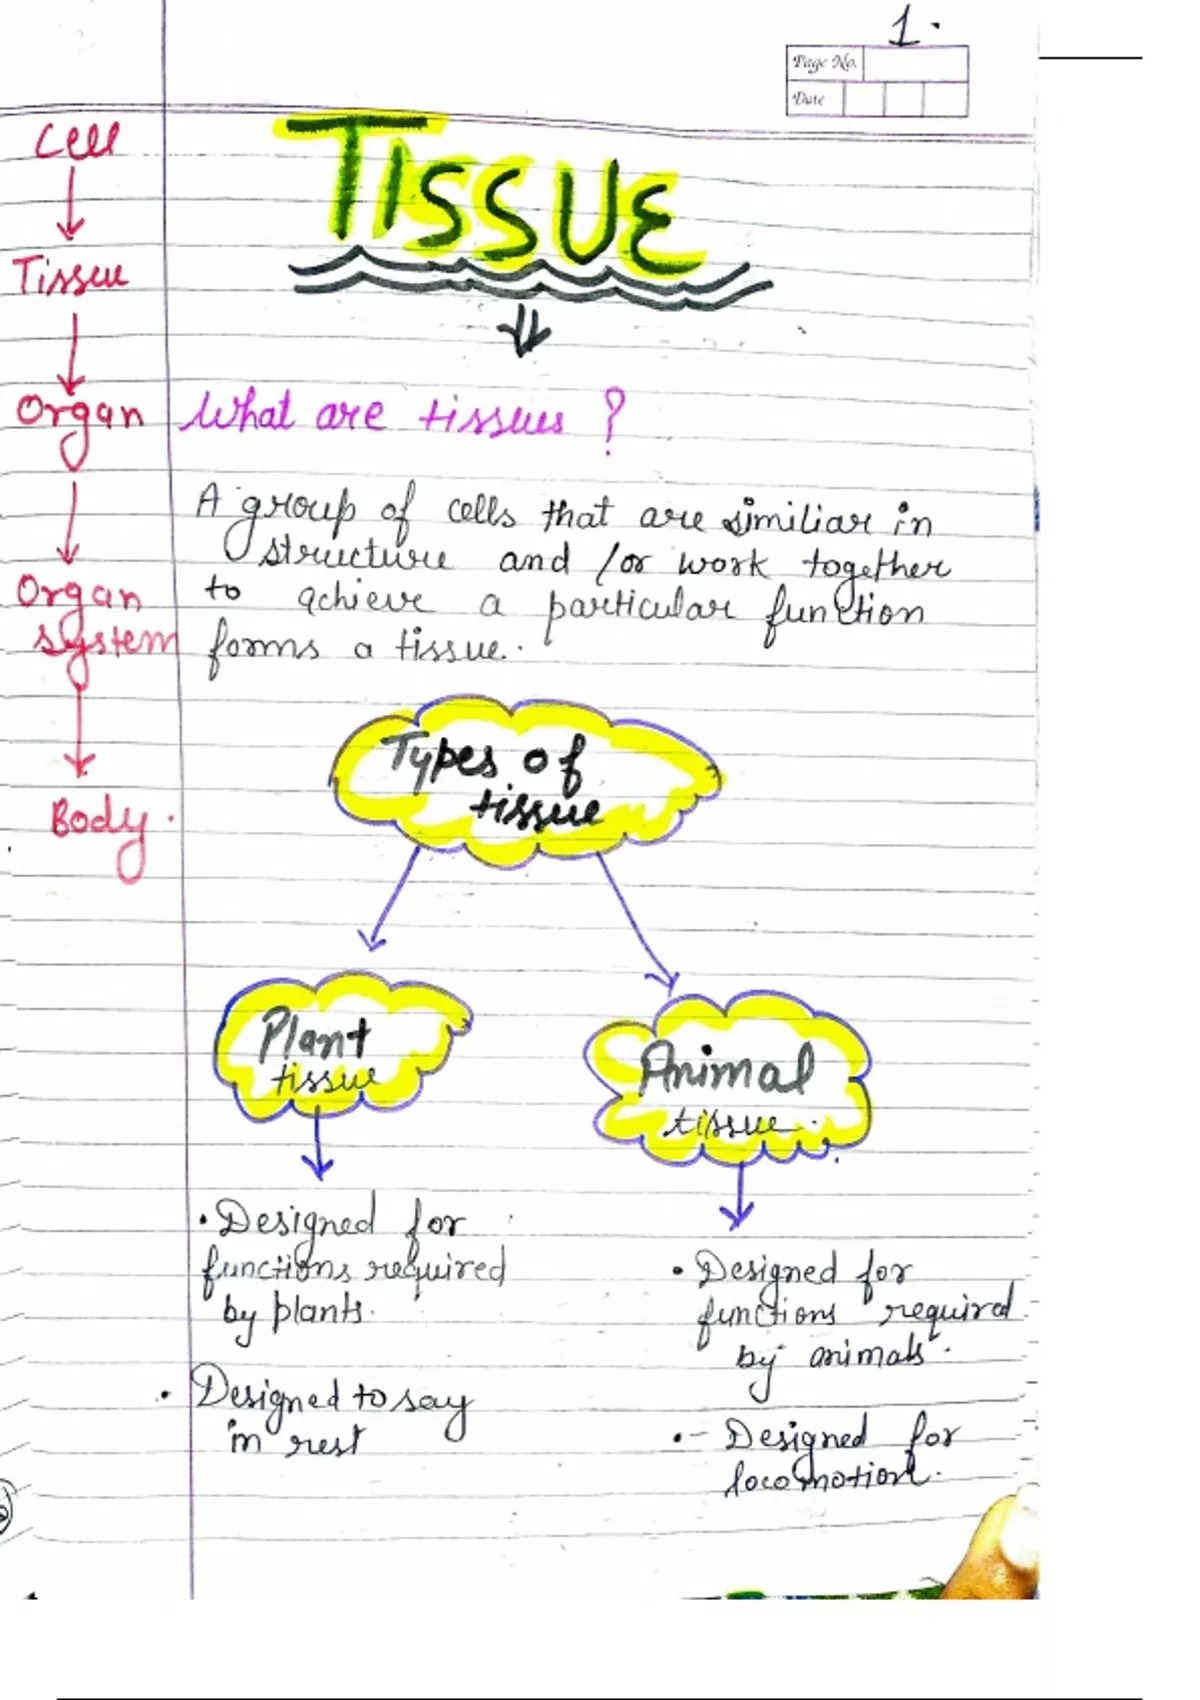 1.
Page No.
Date
Cell
Tissue
Organ
Organ
system
Body.
TISSUE
What are tissues ?
A group of cells that are similiar in
structure and /or work together
to achieve a particular function
forms a tissue.
Types of
tissue
Plant
tissue
Animal
tissue.
• Designed for
functions required
by plants.
• Designed to say
in rest
• Designed for
functions required
by animals.
• - Designed for
locomotion.